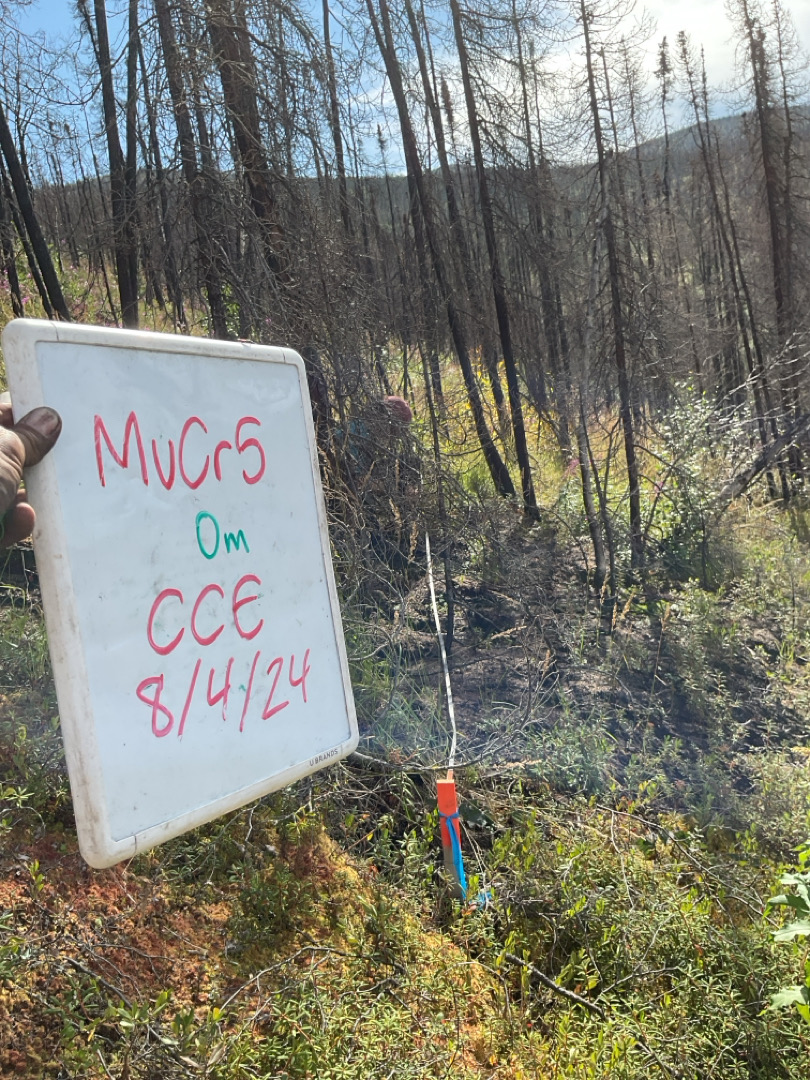 MuCr5
0m
CCE
8/4/24
U BRANDS